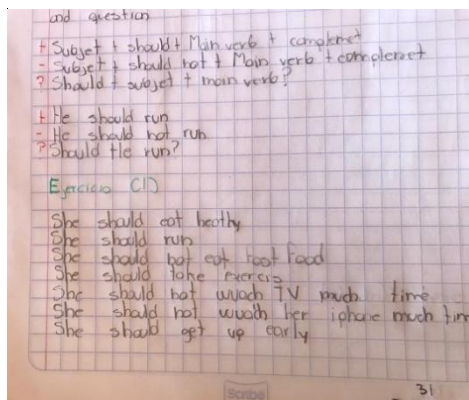 and question
+ Subjet + should + Main verb + complemet
- Subjet + should not + Main verb + complemet
? Should + subjet + main verb?
+ He should run
- He should not run
? Should He run?
Ejercicio (1)
She should eat heathy
She should run
She should not eat foot Food
She should take exercis
She should not wach TV much time
She should not wach her iphone much tim
She should get up early
Scribe
31